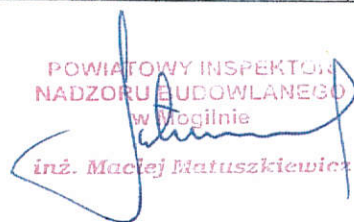 POWIATOWY INSPEKTOR
NADZORU BUDOWLANEGO
w Mogilnie
inż. Maciej Matuszkiewicz